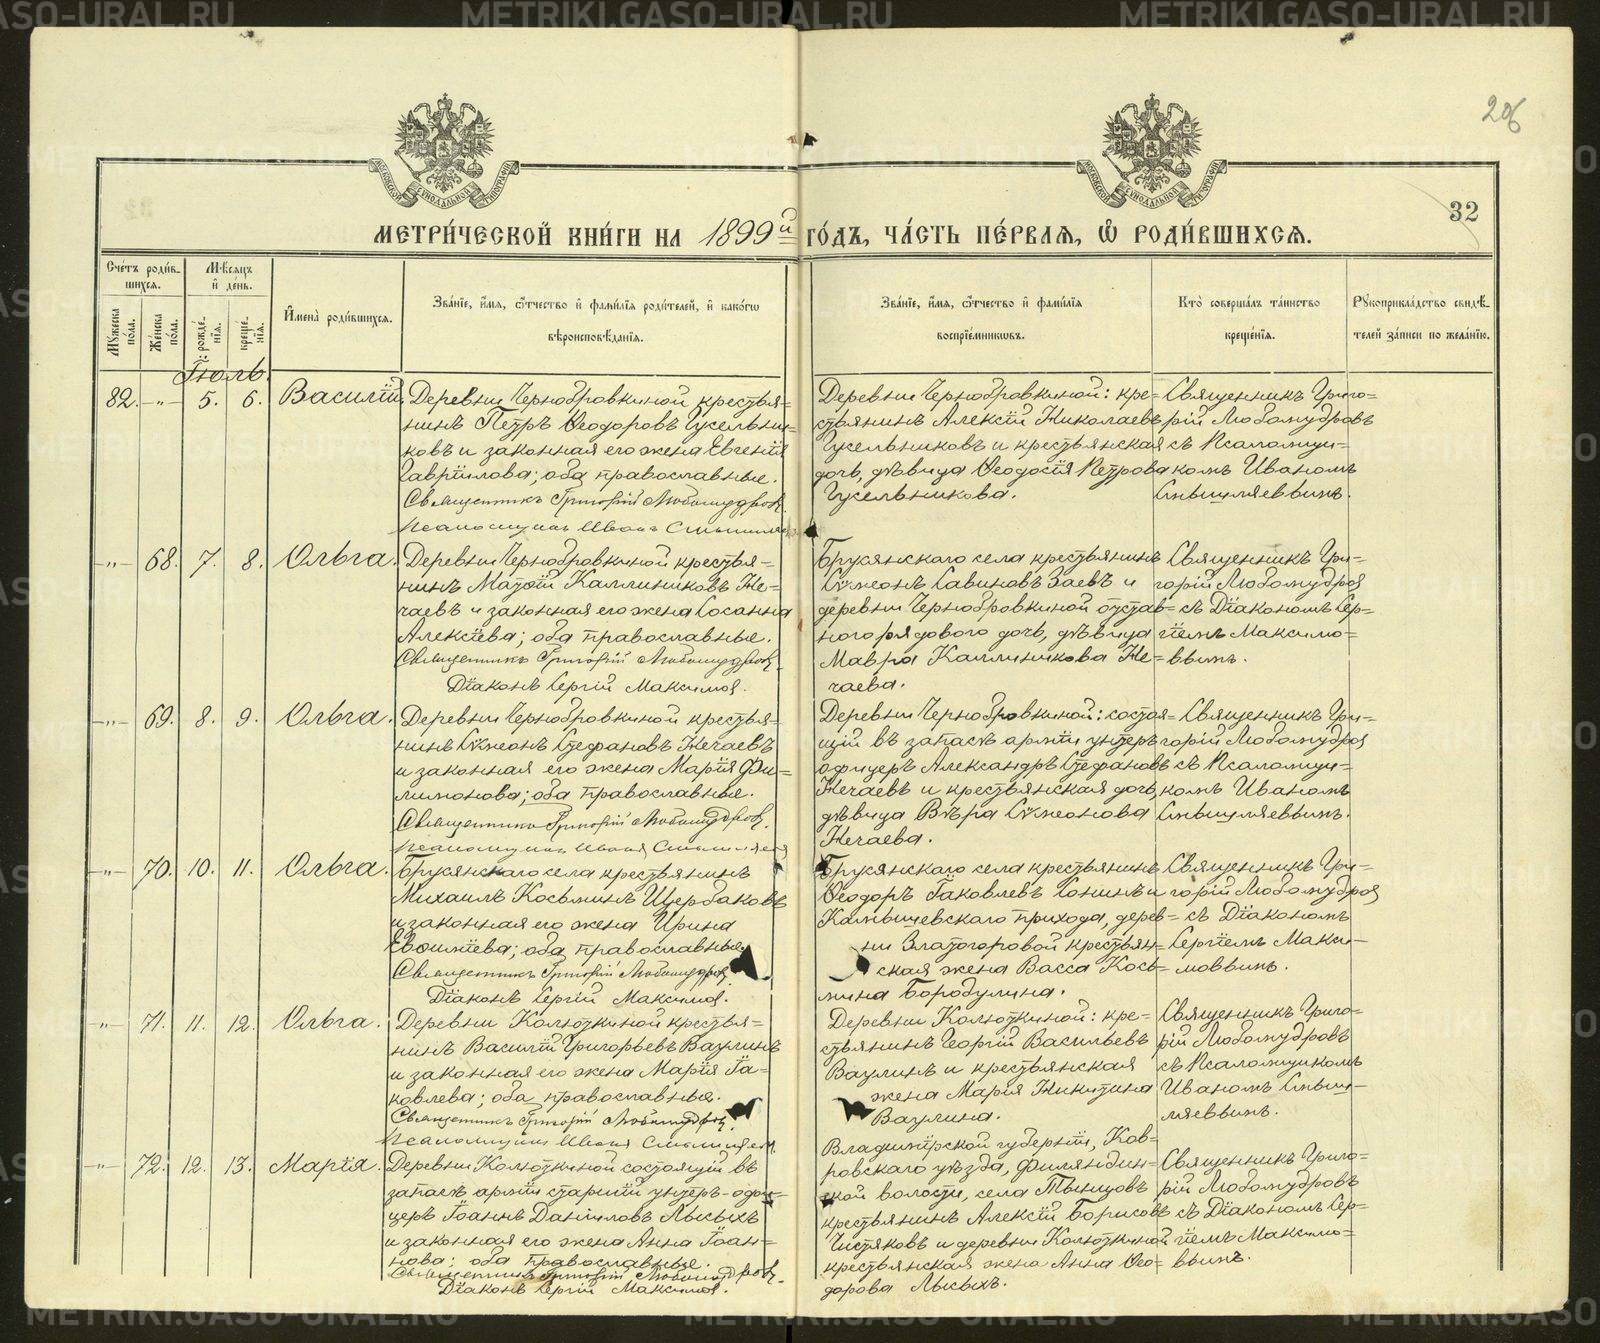 206
32
МЕТРИ́ЧЕСКОЙ КНИ́ГИ НА 1899й ГО́ДЪ, ЧА́СТЬ ПЕ́РВАЯ, Ѡ РОДИ́ВШИХСЯ.
Сче́тъ роди́в-
шихся.
Мѣ́сяцъ
и҆ де́нь.
И҆мена̀ роди́вшихся.
Зва́нїе, и҆́мя, ѻ҆́тчество и҆ фами́лїѧ роди́телей, и҆ како́гѡ
вѣроисповѣ́данїѧ.
Зва́нїе, и҆́мя, ѻ҆́тчество и҆ фами́лїѧ
воспрїе́мникѡвъ.
Кто̀ соверша́лъ та́инство
креще́нїѧ.
Рꙋкоприкла́дство свидѣ́-
телей за́писи по жела́нїю.
Мꙋ́жеска по́ла.
Же́нска по́ла.
рожде́-нїѧ.
креще́-нїѧ.
Іюль.
82. -"- 5. 6. Василій.
Деревни Чернобровкиной крестья=
нинъ Петръ Ѳеодоровъ Гусельни=
ковъ и законная его жена Евгенія
Гавріилова; оба православные.
Священникъ Григорій Любомудровъ.
Псаломщикъ Иванъ
Деревни Чернобровкиной: кре=
стьянинъ Алексій Николаевъ
Гусельниковъ и крестьянская
дочь, дѣвица Ѳеодосія Петрова
Гусельникова.
Священникъ Григо=
рій Любомудровъ
съ Псаломщи=
комъ Иваномъ
-"- 68. 7. 8. Ольга.
Деревни Чернобровкиной крестья=
нинъ Матѳій Каллиниковъ Не=
чаевъ и законная его жена Сосанна
Алексіева; оба православные.
Священникъ Григорій Любомудровъ.
Діаконъ Сергій Максимов.
Брусянскаго села крестьянинъ
Сѵмеонъ Савиновъ Заевъ и
деревни Чернобровкиной отстав=
ного рядового дочь, дѣвица
Мавра Каллиникова Не=
чаева.
Священникъ Гри=
горій Любомудров
съ Діакономъ Сер=
гіемъ Максимо=
вымъ.
-"- 69. 8. 9. Ольга.
Деревни Чернобровкиной крестья=
нинъ Сѵмеонъ Стефановъ Нечаевъ
и законная его жена Марія Фи=
лимонова; оба православные.
Священникъ Григорій Любомудровъ.
Псаломщикъ Иванъ
Деревни Чернобровкиной: состоя=
щій въ запасѣ арміи унтеръ
офицеръ Александръ Стефановъ
Нечаевъ и крестьянская дочь,
дѣвица Вѣра Сѵмеонова
Нечаева.
Священникъ Гри=
горій Любомудров
съ Псаломщи=
комъ Иваномъ
-"- 70. 10. 11. Ольга.
Брусянскаго села крестьянинъ
Михаилъ Косьминъ Щербаковъ
и законная его жена Ирина
Евѳиміева; оба православные.
Священникъ Григорій Любомудровъ.
Діаконъ Сергій Максимов.
Брусянскаго села крестьянинъ
Ѳеодоръ Іаковлевъ Сонинъ и
Камышевскаго прихода, дерев=
ни Златогоровой крестьян=
ская жена Васса Кось=
мина Бородулина.
Священникъ Гри=
горій Любомудров
съ Діакономъ
Сергіемъ Макси=
мовымъ.
-"- 71. 11. 12. Ольга.
Деревни Колюткиной крестья=
нинъ Василій Григорьевъ Ваулинъ
и законная его жена Марія Іа=
ковлева; оба православные.
Священникъ Григорій Любомудровъ.
Псаломщикъ Иванъ
Деревни Колюткиной: кре=
стьянинъ Георгій Васильевъ
Ваулинъ и крестьянская
жена Марія Никитина
Ваулина.
Священникъ Григо=
рій Любомудровъ
съ Псаломщикомъ
Иваномъ
-"- 72. 12. 13. Марія.
Деревни Колюткиной состоящій въ
запасѣ арміи старшій унтеръ-офи=
церъ Іоаннъ Даніиловъ Лысыхъ
и законная его жена Анна Іоан=
нова; оба православные.
Священникъ Григорій Любомудровъ.
Діаконъ Сергій Максимов.
Владимірской губерніи, Ков=
ровскаго уѣзда, Филяндин=
ской волости, села Тынцовъ
крестьянинъ Алексій Борисовъ
Чистяковъ и деревни Колюткиной
крестьянская жена Анна Ѳео=
дорова Лысыхъ.
Священникъ Григо=
рій Любомудровъ
съ Діакономъ Сер=
гіемъ Максимо=
вымъ.
METRIKI.GASO-URAL.RU